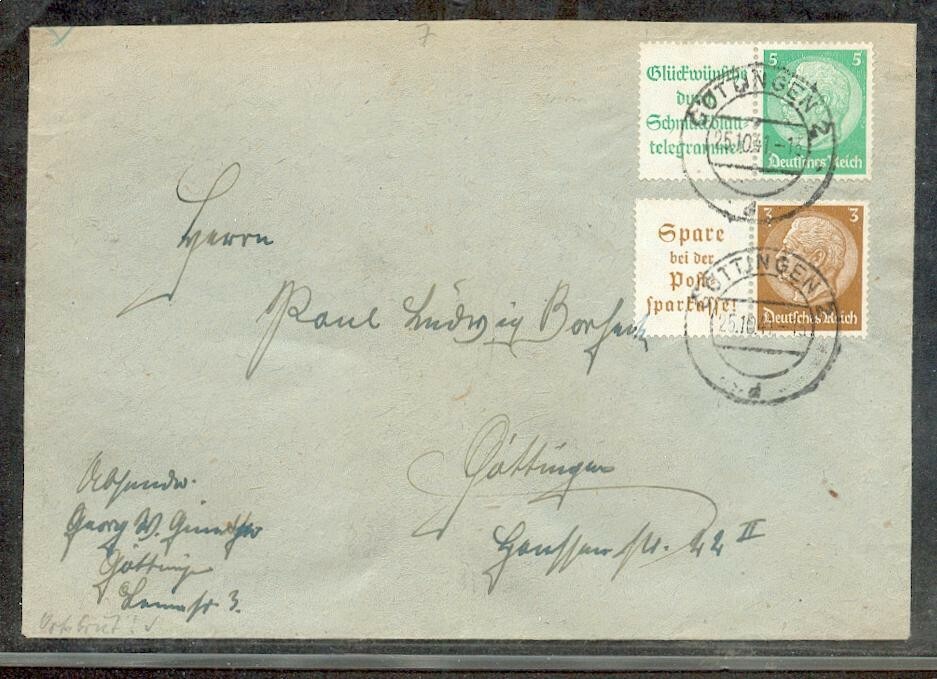 Glückwünsche
durch
Schmuckblatt-
telegramme!
5 5
Deutsches Reich
GÖTTINGEN 2
25.10.41.-13
d
Spare
bei der
Post-
sparkasse!
3 3
Deutsches Reich
GÖTTINGEN 2
25.10.41
d
Herrn
Paul Ludwig
Göttingen
str. 22 II
Absender
Georg W.
Göttingen
3.